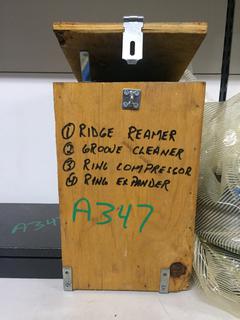 ① RIDGE REAMER
② GROOVE CLEANER
③ RING COMPRESSOR
④ RING EXPANDER
A347
A34